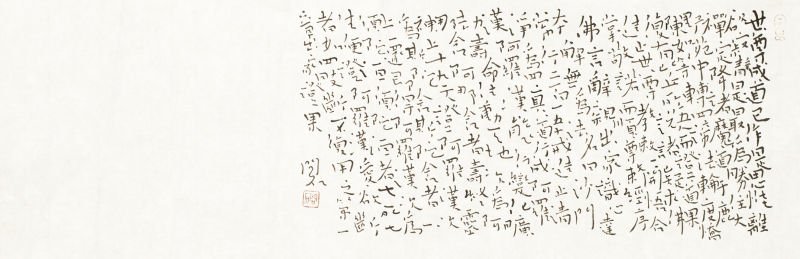 世尊成道已作是思惟離
欲寂靜是最為勝住大
禪定降諸魔道於鹿
野苑中轉四諦法輪度憍
陳如等五人而證道果
復有比丘所說諸疑求佛
進止世尊教敕一一開悟合
掌敬諾而順尊敕經序
佛言辭親出家識心達
本解無為法名曰沙門
常行二百五十戒進止清
淨為四真道行成阿羅
漢阿羅漢者能飛行變化曠
劫壽命住動天地次為阿
那含阿那含者壽終靈
神上十九天證阿羅漢次
為斯陀含斯陀含者一
上一還即得阿羅漢次為
須陀洹須陀洹者七死七
生便證阿羅漢愛欲斷
者如四肢斷不復用之第一
章出家證果